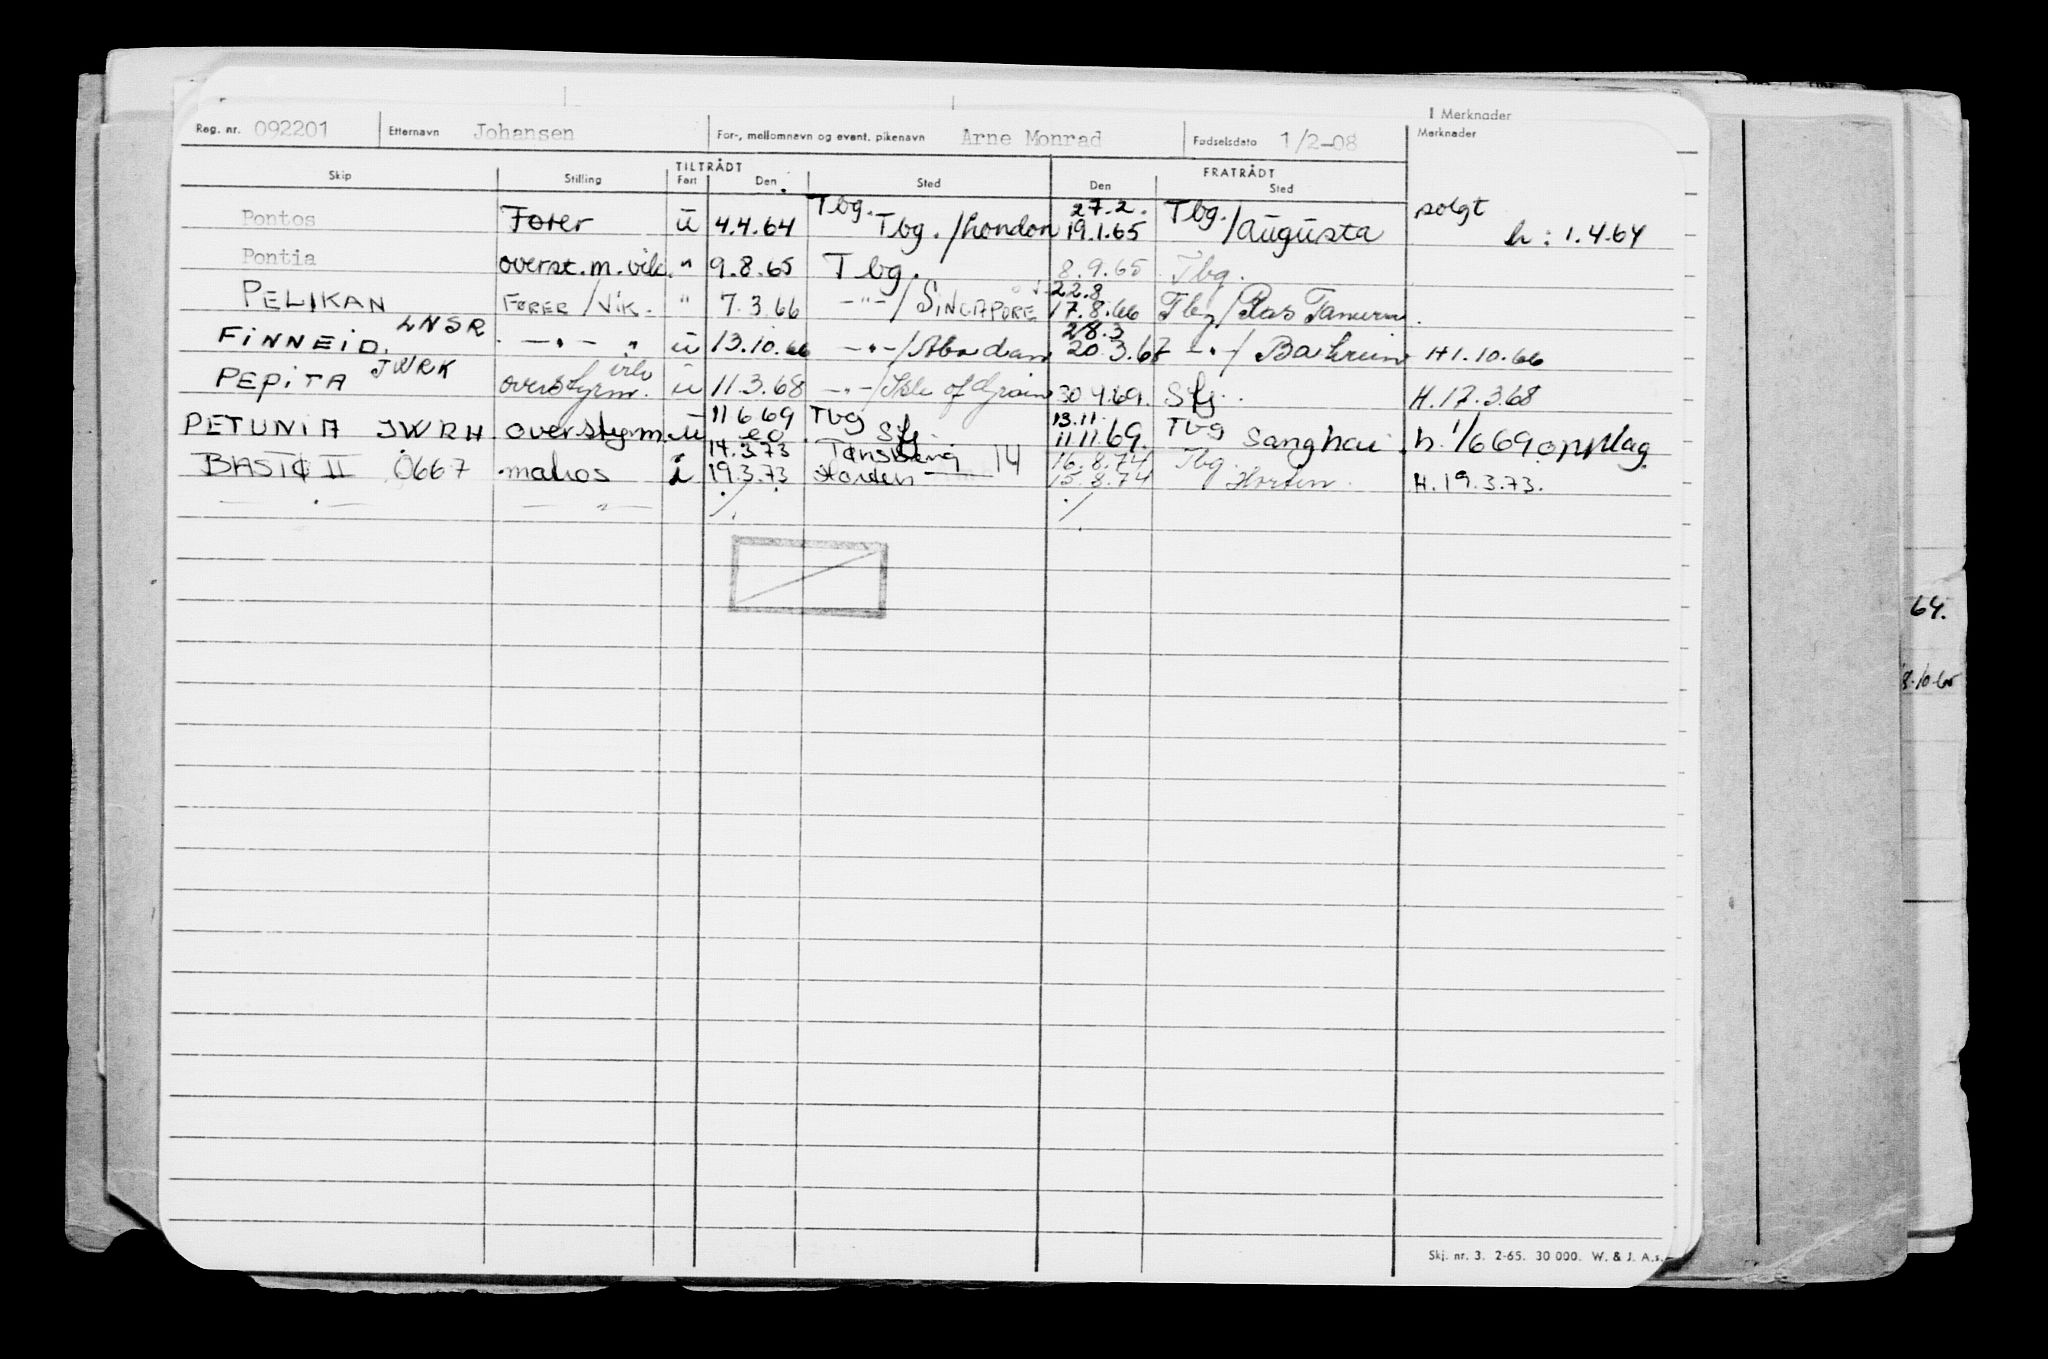 I Merknader
Reg. nr. 092201 Etternavn Johansen For-, mellomnavn og event. pikenavn Arne Monrad Fødselsdato 1/2-08 Merknader
TILTRÅDT FRATRÅDT
Skip Stilling Fart Den Sted Den Sted
Tbg. 27.2. Tbg. solgt
Pontos Fører u 4.4.64 Tbg./London 19.1.65 /Augusta h: 1.4.64
Pontia overst.m.vik. " 9.8.65 Tbg. 8.9.65 Tbg.
22.8
PELIKAN FØRER/VIK. " 7.3.66 -"-/SINGAPORE 17.8.66 Tbg/Ras Tanura.
LNSR 28.3
FINNEID. -"- " u 13.10.66 -"-/Abadan 20.3.67 -"-/ Bahrein H1.10.66
JWRK vik
PEPITA overstyrm. u 11.3.68 -"-/Isle of Grain 30 4.69. Sfj. H.17.3.68
11 6 69 Tbg 13.11 Tbg
PETUNIA JWRH overstyrm. u 20 Sfj 11.11.69. Sanghai h. 1/6 69 opplag
14.3.73 Tønsberg 14 16.8.74 Tbg.
BASTØ II O667 matros i 19.3.73 Horten 15.8.74 Horten. H.19.3.73.
— " — — " — ./. ./.
64.
Skj. nr. 3. 2-65. 30 000. W. & J. A.s.